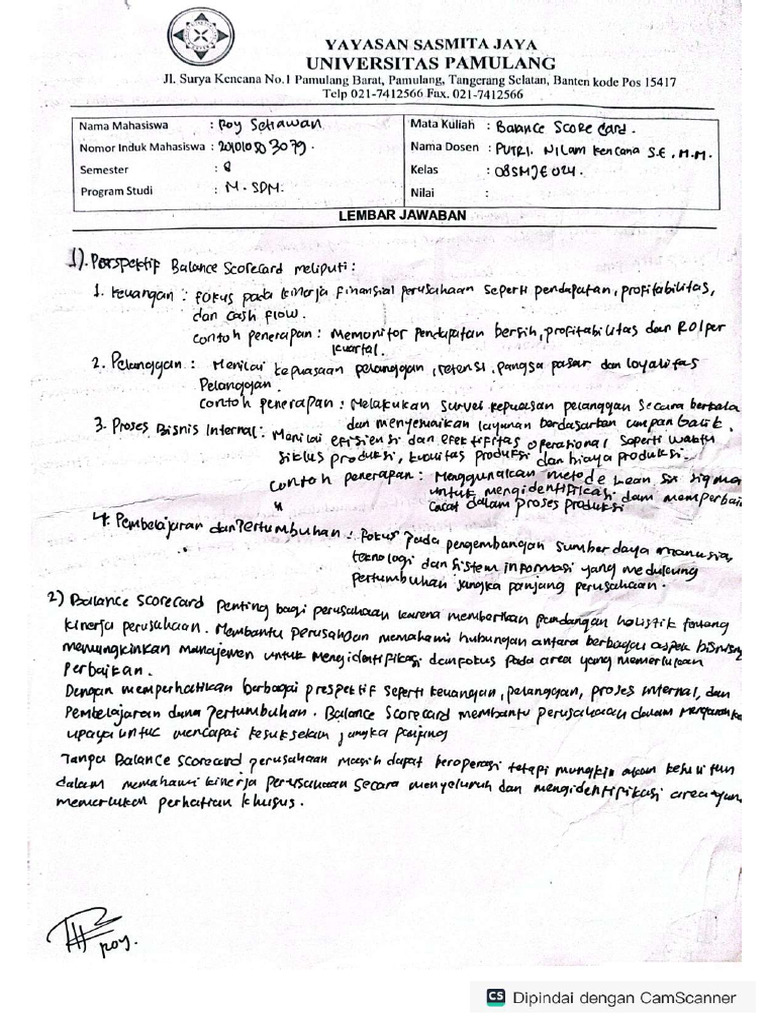 YAYASAN SASMITA JAYA
UNIVERSITAS PAMULANG
Jl. Surya Kencana No.1 Pamulang Barat, Pamulang, Tangerang Selatan, Banten kode Pos 15417
Telp 021-7412566 Fax. 021-7412566
Nama Mahasiswa : Roy Setiawan
Nomor Induk Mahasiswa : 201010503079.
Semester : 8
Program Studi : M. SDM.
Mata Kuliah : Balance Score Card.
Nama Dosen : PUTRI. Nilam Kencana S.E, M.M.
Kelas : 08SMJE024.
Nilai :
LEMBAR JAWABAN
1). Perspektif Balance Scorecard meliputi :
1. Keuangan : Fokus pada kinerja finansial perusahaan seperti pendapatan, profitabilitas,
dan cash flow.
contoh penerapan : Memonitor pendapatan bersih, profitabilitas dan ROI per
kuartal.
2. Pelanggan : Menilai kepuasaan pelanggan, retensi, pangsa pasar dan loyalitas
Pelanggan.
contoh penerapan : Melakukan survei kepuasan pelanggan secara berkala
dan menyesuaikan layanan berdasarkan umpan balik.
3. Proses Bisnis Internal : Menilai efisiensi dan efektifitas operasional seperti waktu
siklus produksi, kualitas produksi dan biaya produksi.
contoh penerapan : Menggunakan metode Lean six sigma
untuk mengidentifikasi dam memperbai
cacat dalam proses produksi
4. Pembelajaran dan Pertumbuhan : Fokus pada pengembangan sumber daya manusia,
teknologi dan sistem informasi yang medukung
pertumbuhan jangka panjang perusahaan.
2) Balance Scorecard penting bagi perusahaan karena memberikan pandangan holistik tentang
kinerja perusahaan. Membantu perusahaan memahami hubungan antara berbagai aspek bisnis
memungkinkan manajemen untuk mengidentifikasi dan fokus pada area yang memerlukan
perbaikan.
Dengan memperhatikan berbagai prespektif seperti keuangan, pelanggan, proses internal, dan
Pembelajaran dana Pertumbuhan. Balance Scorecard membantu perusahaan dalam
upaya untuk mencapai kesuksekan jangka panjang
Tanpa Balance Scorecard perusahaan masih dapat beroperasi tetapi mungkin akan kesulitan
dalam memahami kinerja perusahaan secara menyeluruh dan mengidentifikasi area yan
memerlukan perhatian khusus.
Roy.
CS Dipindai dengan CamScanner